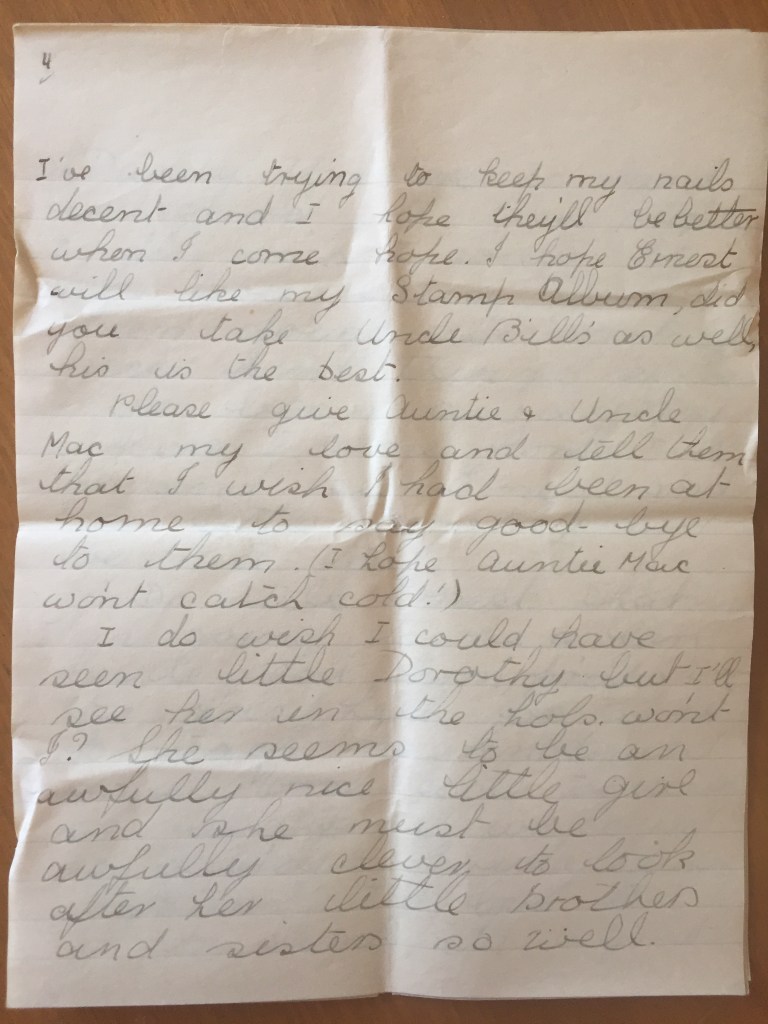 4
I've been trying to keep my nails
decent and I hope they'll be better
when I come hope. I hope Ernest
will like my Stamp Album, did
you take Uncle Bill's as well,
his is the best.
Please give Auntie & Uncle
Mac my love and tell them
that I wish I had been at
home to say good-bye
to them. (I hope Auntie Mac
won't catch cold!)
I do wish I could have
seen little Dorothy but I'll
see her in the hols. won't
I? She seems to be an
awfully nice little girl
and she must be
awfully clever to look
after her little brothers
and sisters so well.